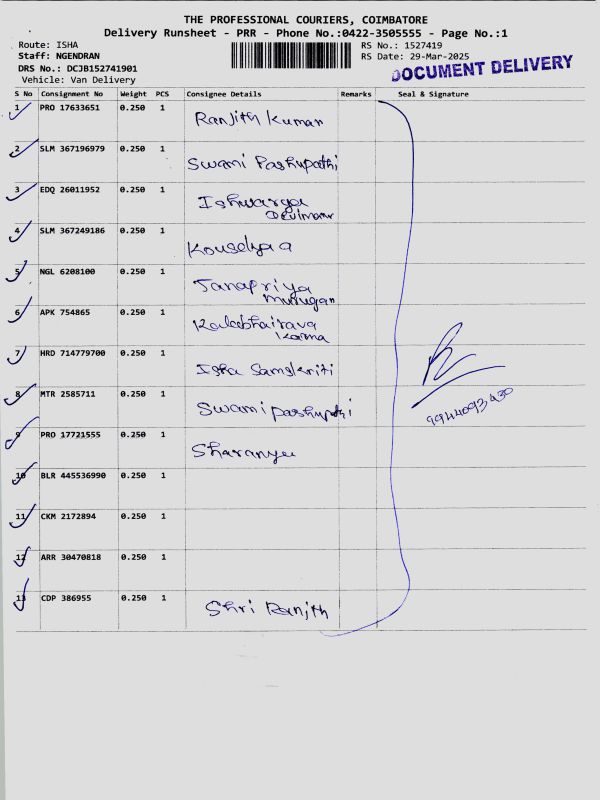 THE PROFESSIONAL COURIERS, COIMBATORE
Delivery Runsheet - PRR - Phone No.:0422-3505555 - Page No.:1
Route: ISHA
Staff: NGENDRAN
DRS No.: DCJB152741901
Vehicle: Van Delivery
RS No.: 1527419
RS Date: 29-Mar-2025
DOCUMENT DELIVERY
S No Consignment No Weight PCS Consignee Details Remarks Seal & Signature
1 PRO 17633651 0.250 1 Ranjith Kumar
2 SLM 367196979 0.250 1 Swami Pashupathi
3 EDQ 26011952 0.250 1 Ishwarya
4 SLM 367249186 0.250 1
5 NGL 6208100 0.250 1 Janapriya
Murugan
6 APK 754865 0.250 1 Kalabhairava
Karma
7 HRD 714779700 0.250 1 Isha Samskriti
8 MTR 2585711 0.250 1 Swami Pashupthi
9 PRO 17721555 0.250 1 Sharanya
10 BLR 445536990 0.250 1
11 CKM 2172894 0.250 1
12 ARR 30470818 0.250 1
13 CDP 386955 0.250 1 Shri Ranjith
9944093430